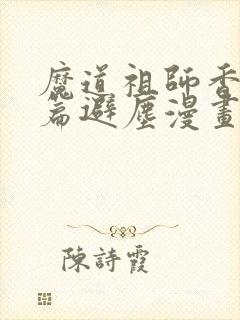 魔道祖師香
篇避塵漫畫
陳詩霞